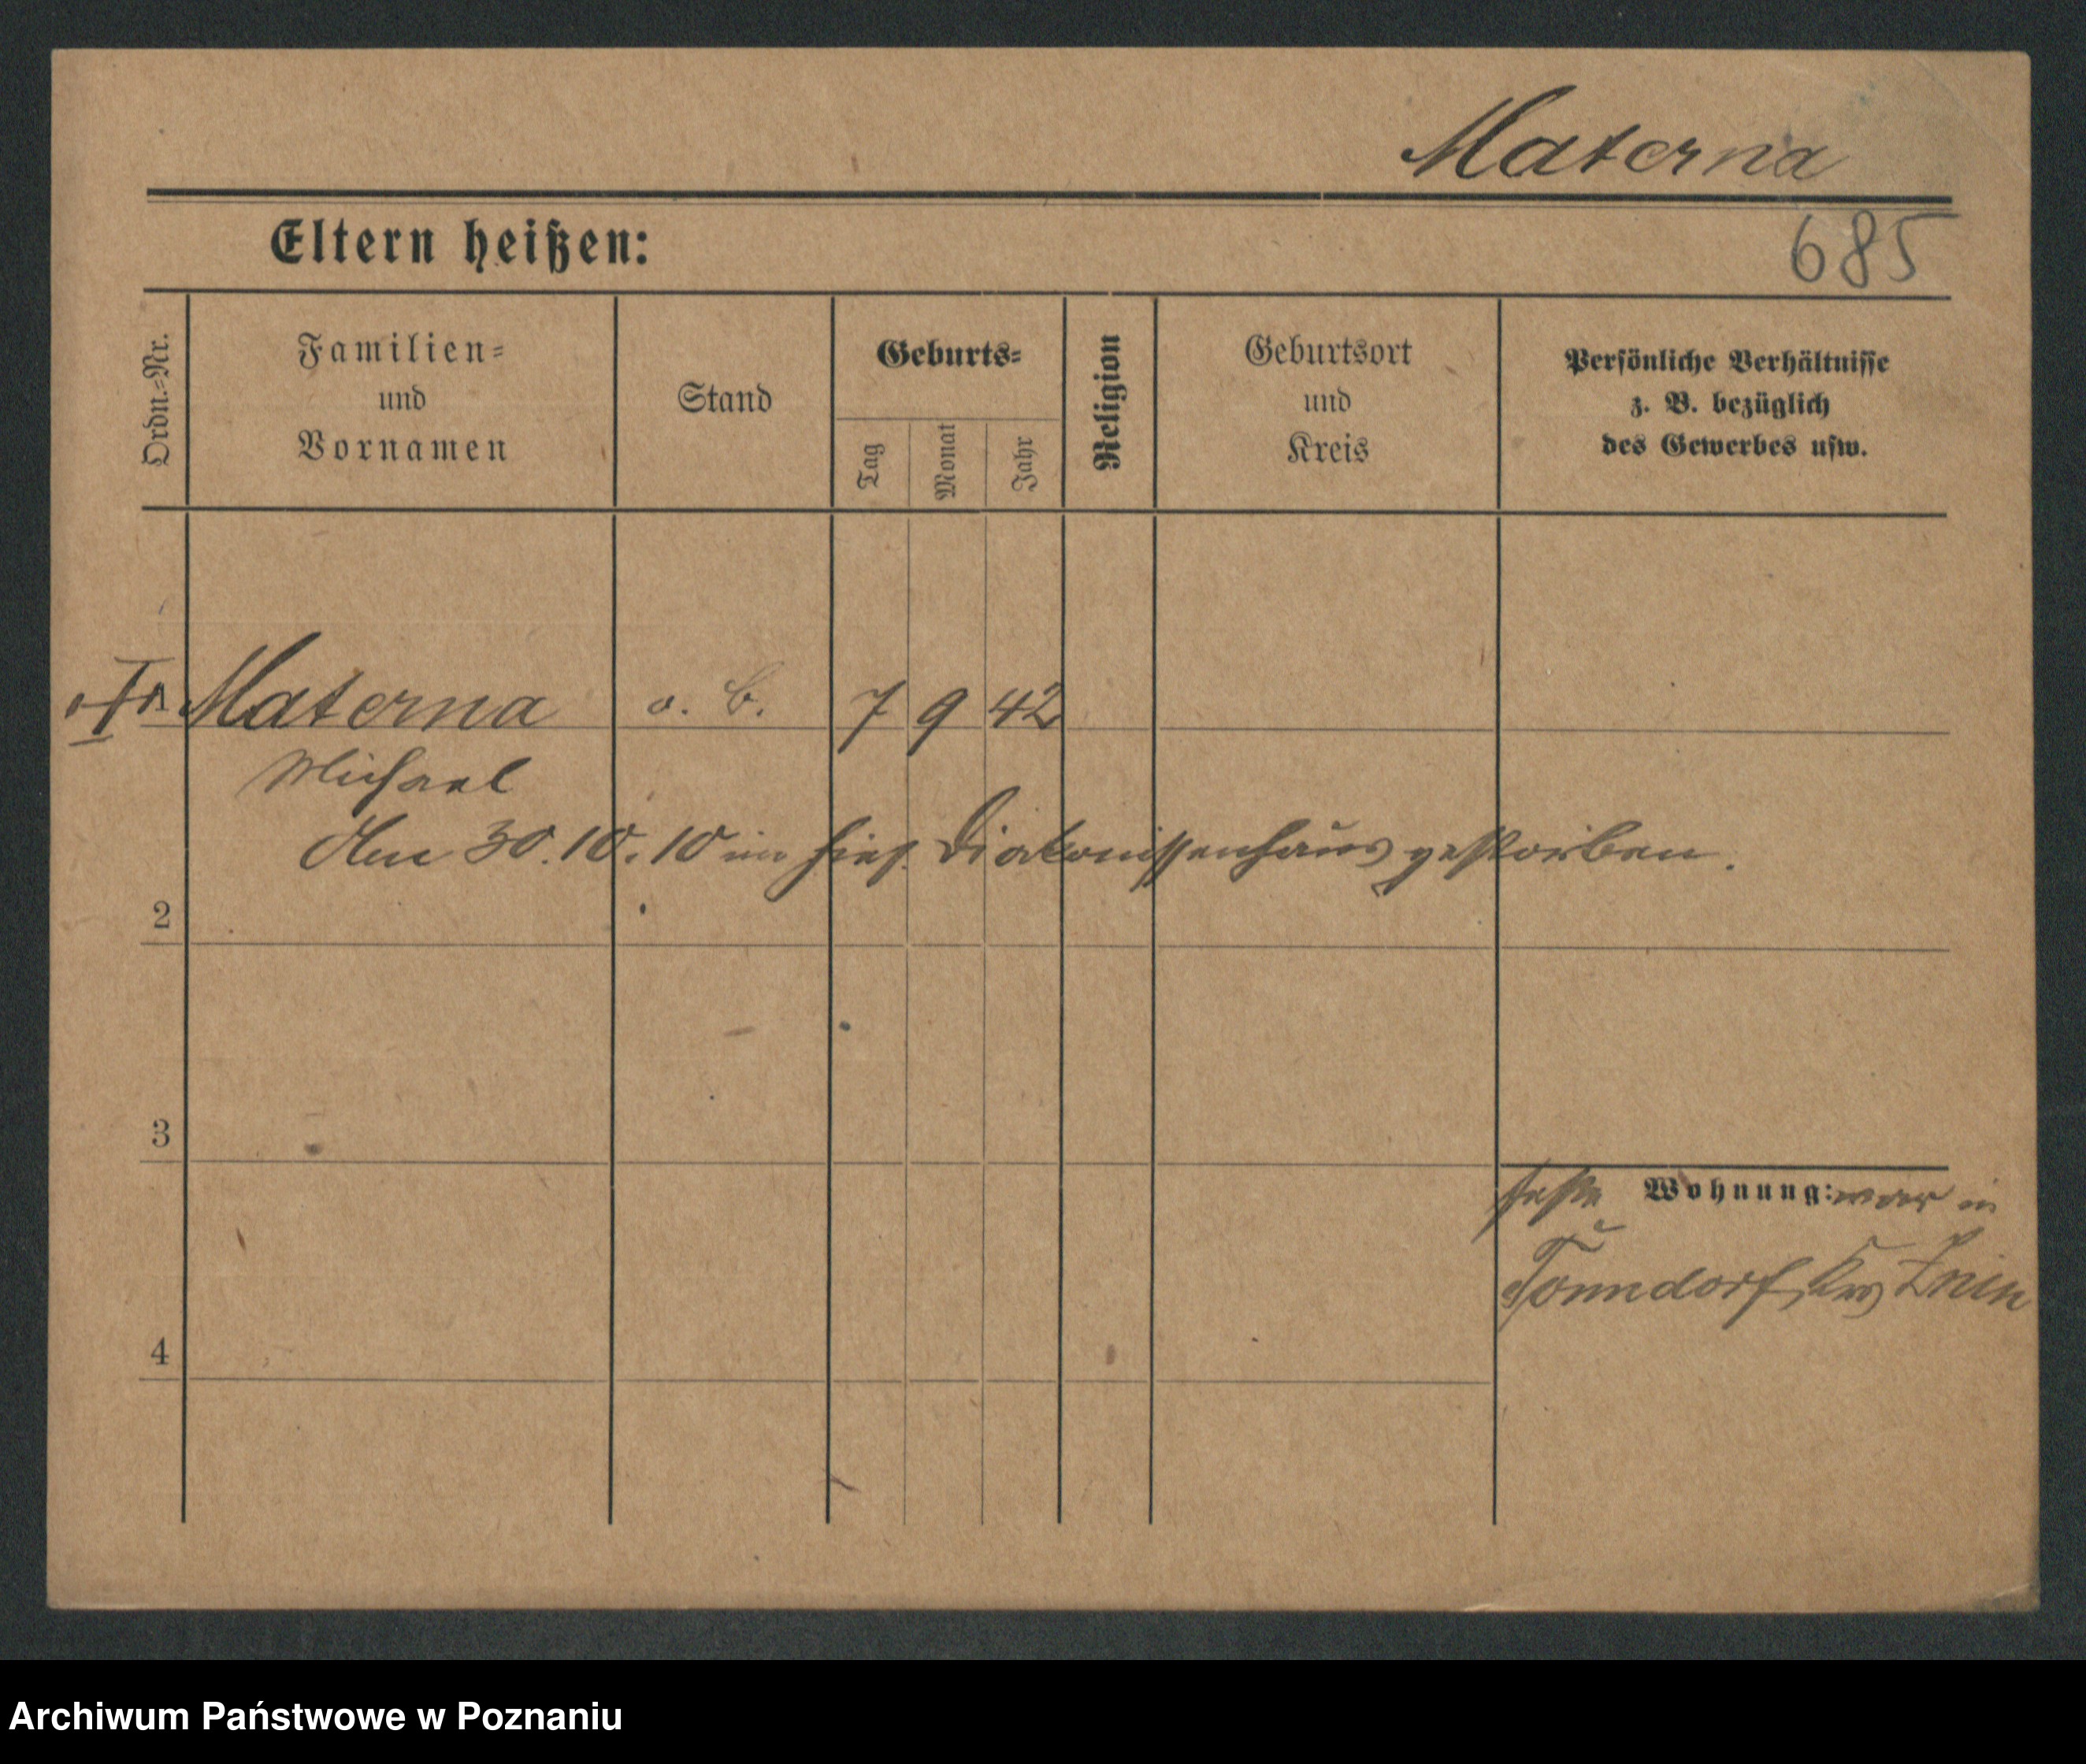 Materna
685
Eltern heißen:
Ordn.-Nr.
Familien-
und
Vornamen
Stand
Geburts-
Tag
Monat
Jahr
Religion
Geburtsort
und
Kreis
Persönliche Verhältnisse
z. B. bezüglich
des Gewerbes usw.
1 Materna o. b. 7 9 42
Michael
Am 30.10.10 im hies. Diakonissenhaus gestorben.
2
3
feste Wohnung: war in
Tonndorf, Krs Znin
4
Archiwum Państwowe w Poznaniu